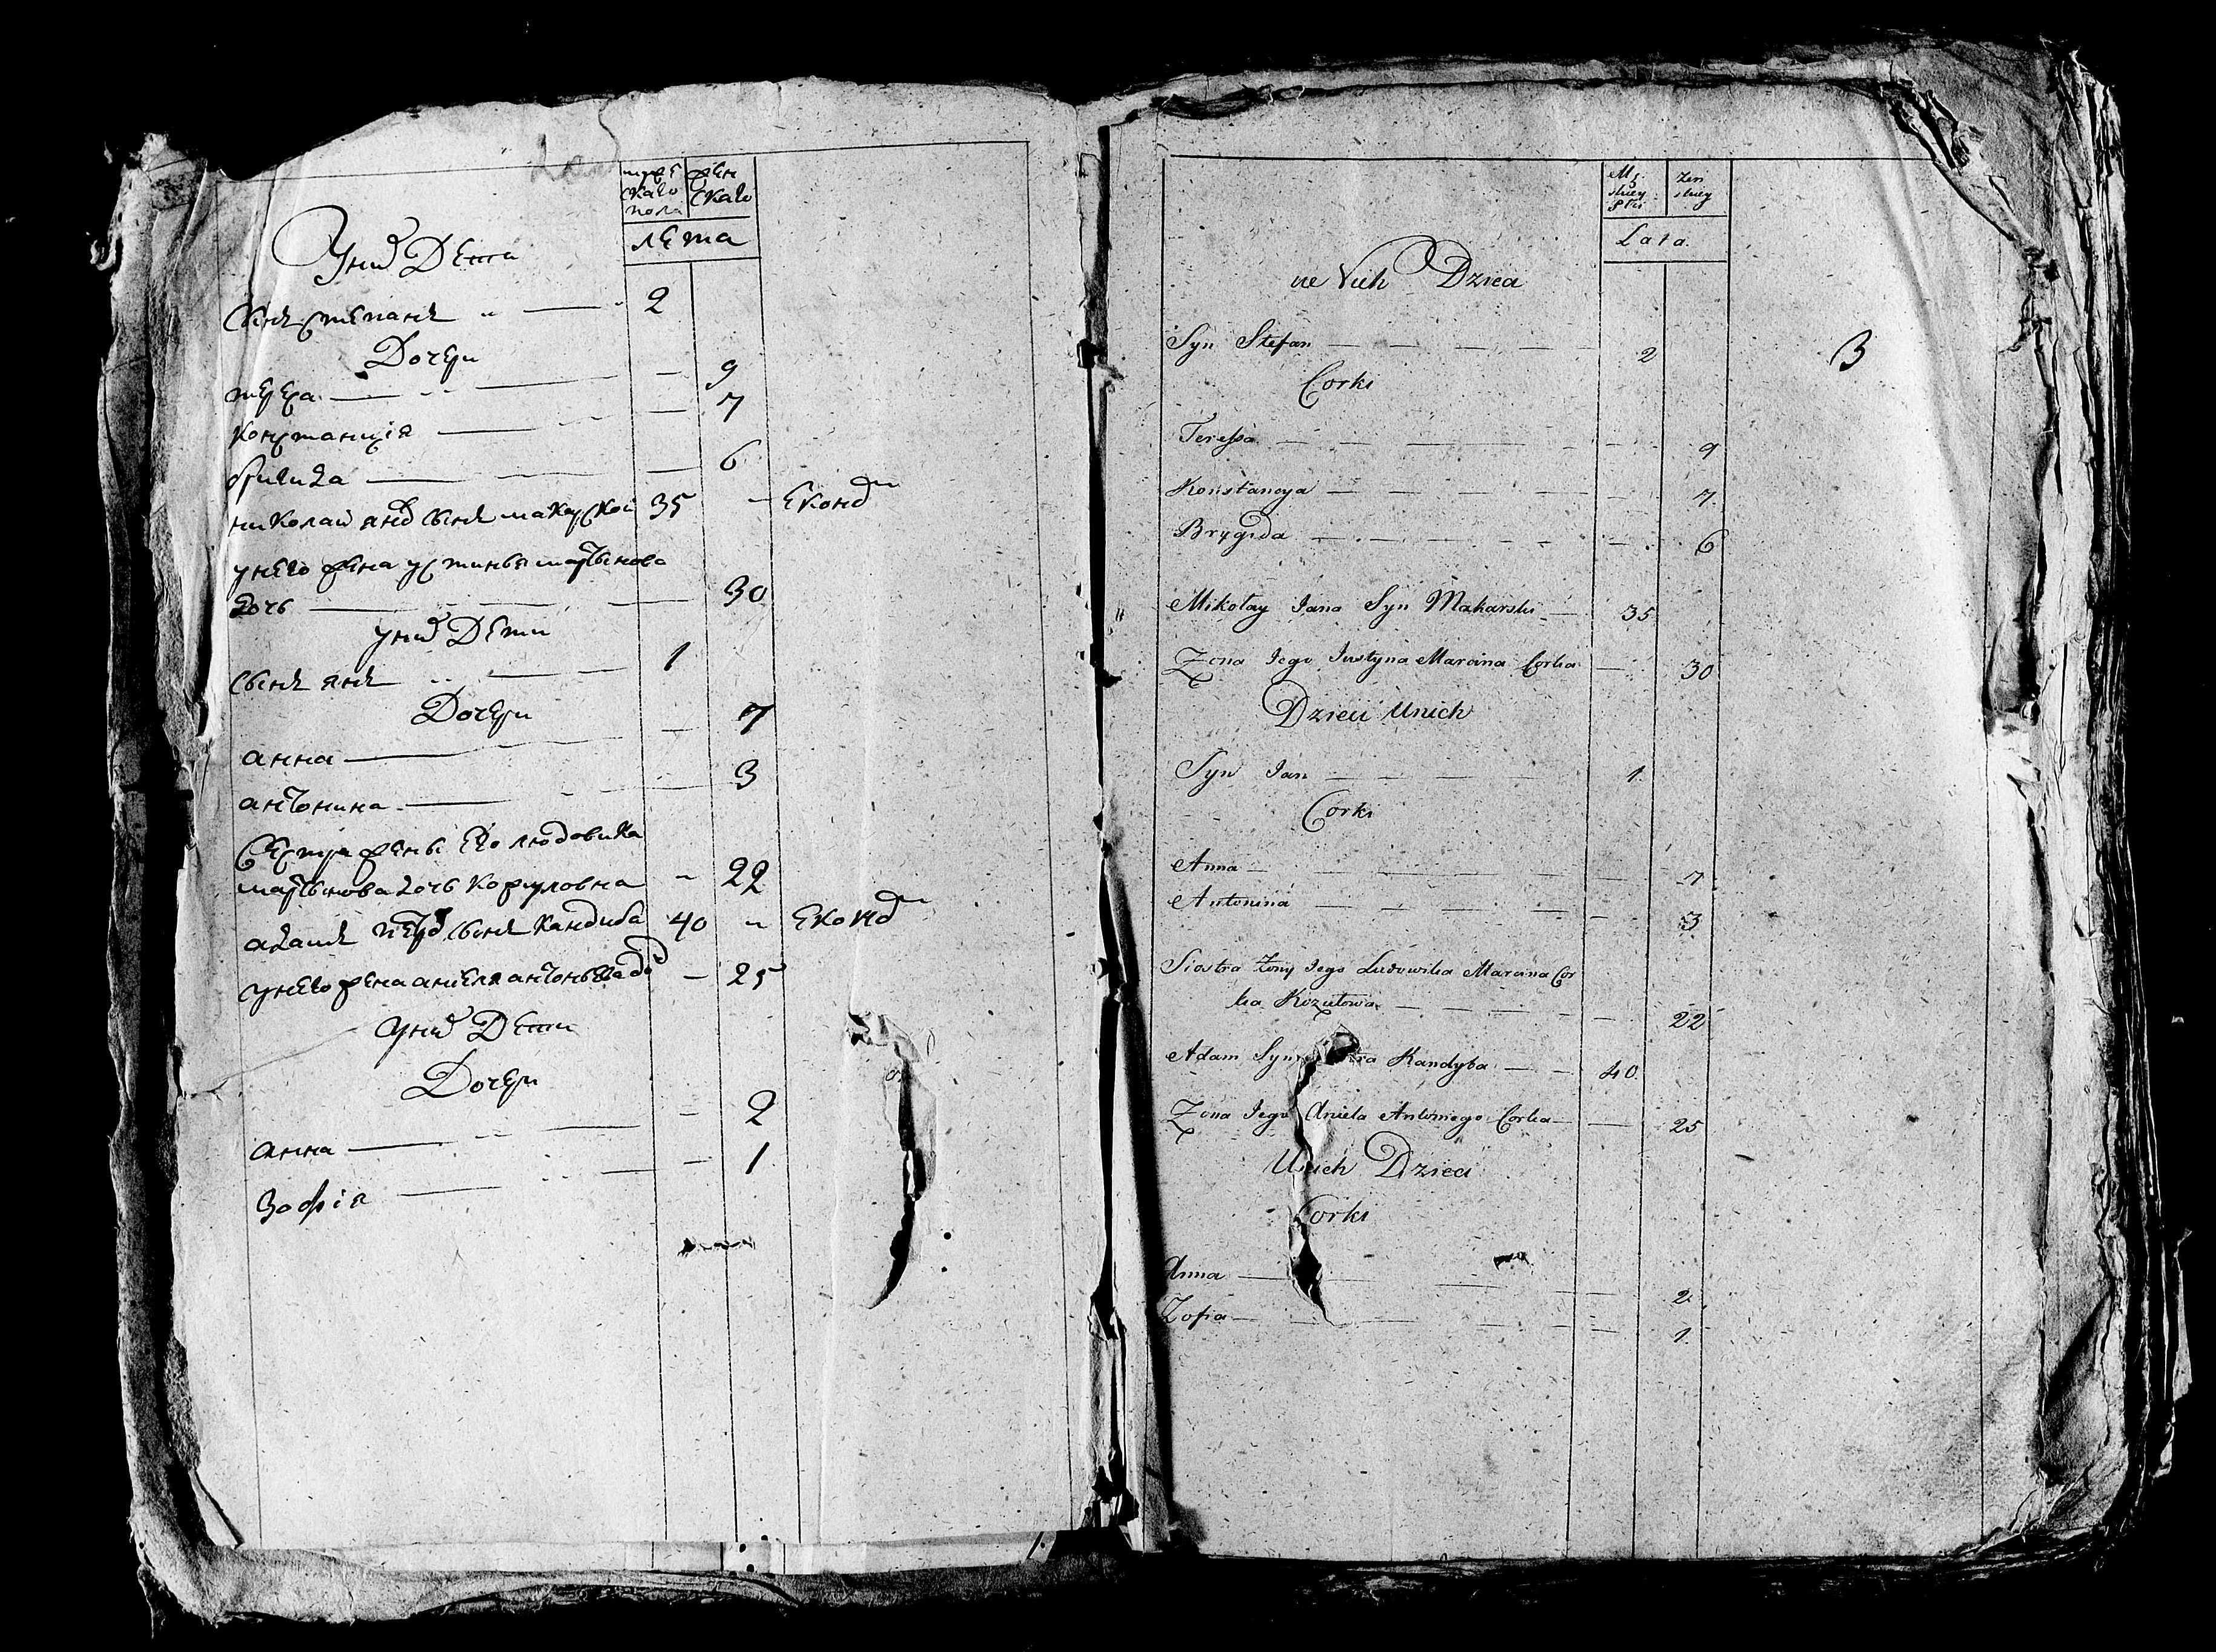 муже
ского
пола
жен
скаго
лета
У них Дети
Сынъ степанъ 2
Дочери
тереса 9
констанция 7
бригида 6
николай янов сынъ макарской 35 Еконо
у него жена устинья мартынова
дочь 30
у них Дети
Сынъ янъ 1
Дочери
анна 7
антонина 3
Сестра жены его людовика
мартынова дочь козуловна 22
адамъ петров сынъ кандыба 40 Еконо
у него жена анеля антоньева до 25
У них Дети
Дочери
анна 2
Зофия 1
Męz
skiey
Płci
Zen
skiey
Lata.
Dzieci
3
Syn Stefan 2
Corki
Teressa 9
Konstancya 7.
Brygida 6
Mikołay Jana Syn Makarski 35
Zona Jego Justyna Marcina Corka 30
Dzieci Unich
Syn Jan 1.
Corki
Anna 7.
Antonina 3.
Siostra Zony Jego Ludowika Marcina Cor
ka Kozułowa 22
Adam Syn Kandyba 40.
Zona Jego Aniela Antoniego Corka 25
Unich Dzieci
Corki
Anna 2.
Zofia 1.